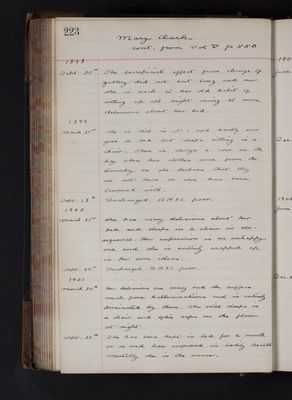 223
Mary Clark
cont. from Vol V p 550
1898
Sept. 30th The beneficial effect from change of
gallery did not last long and now
she is back to her old habit of
sitting up all night owing to some
delusions about her bed.
1899
March 31st She is still in F.1 and hardly ever
goes to bed but sleeps sitting in a
chair. There is always a row on the
day when her clothes come from the
laundry as she declares that they
are not hers or else have been
tampered with.
Sept. 23rd Unchanged. B.H. &c. poor.
1900
March 31st She has many delusions about her
bed and sleeps in a chair in con-
sequence. Her expression is an unhappy
one and she is entirely wrapped up
in her own ideas.
Sept. Unchanged. B.H. &c. poor.
1901
March 30th Her delusions are many and she suffers
much from hallucinations and is entirely
dominated by them. She still sleeps in
a chair and often naps on the floor
at night.
Sept. 30th She has been kept in bed for a month
or so and has improved in bodily health
Mentally she is the same.
190
June
Dec
190
June
Dec